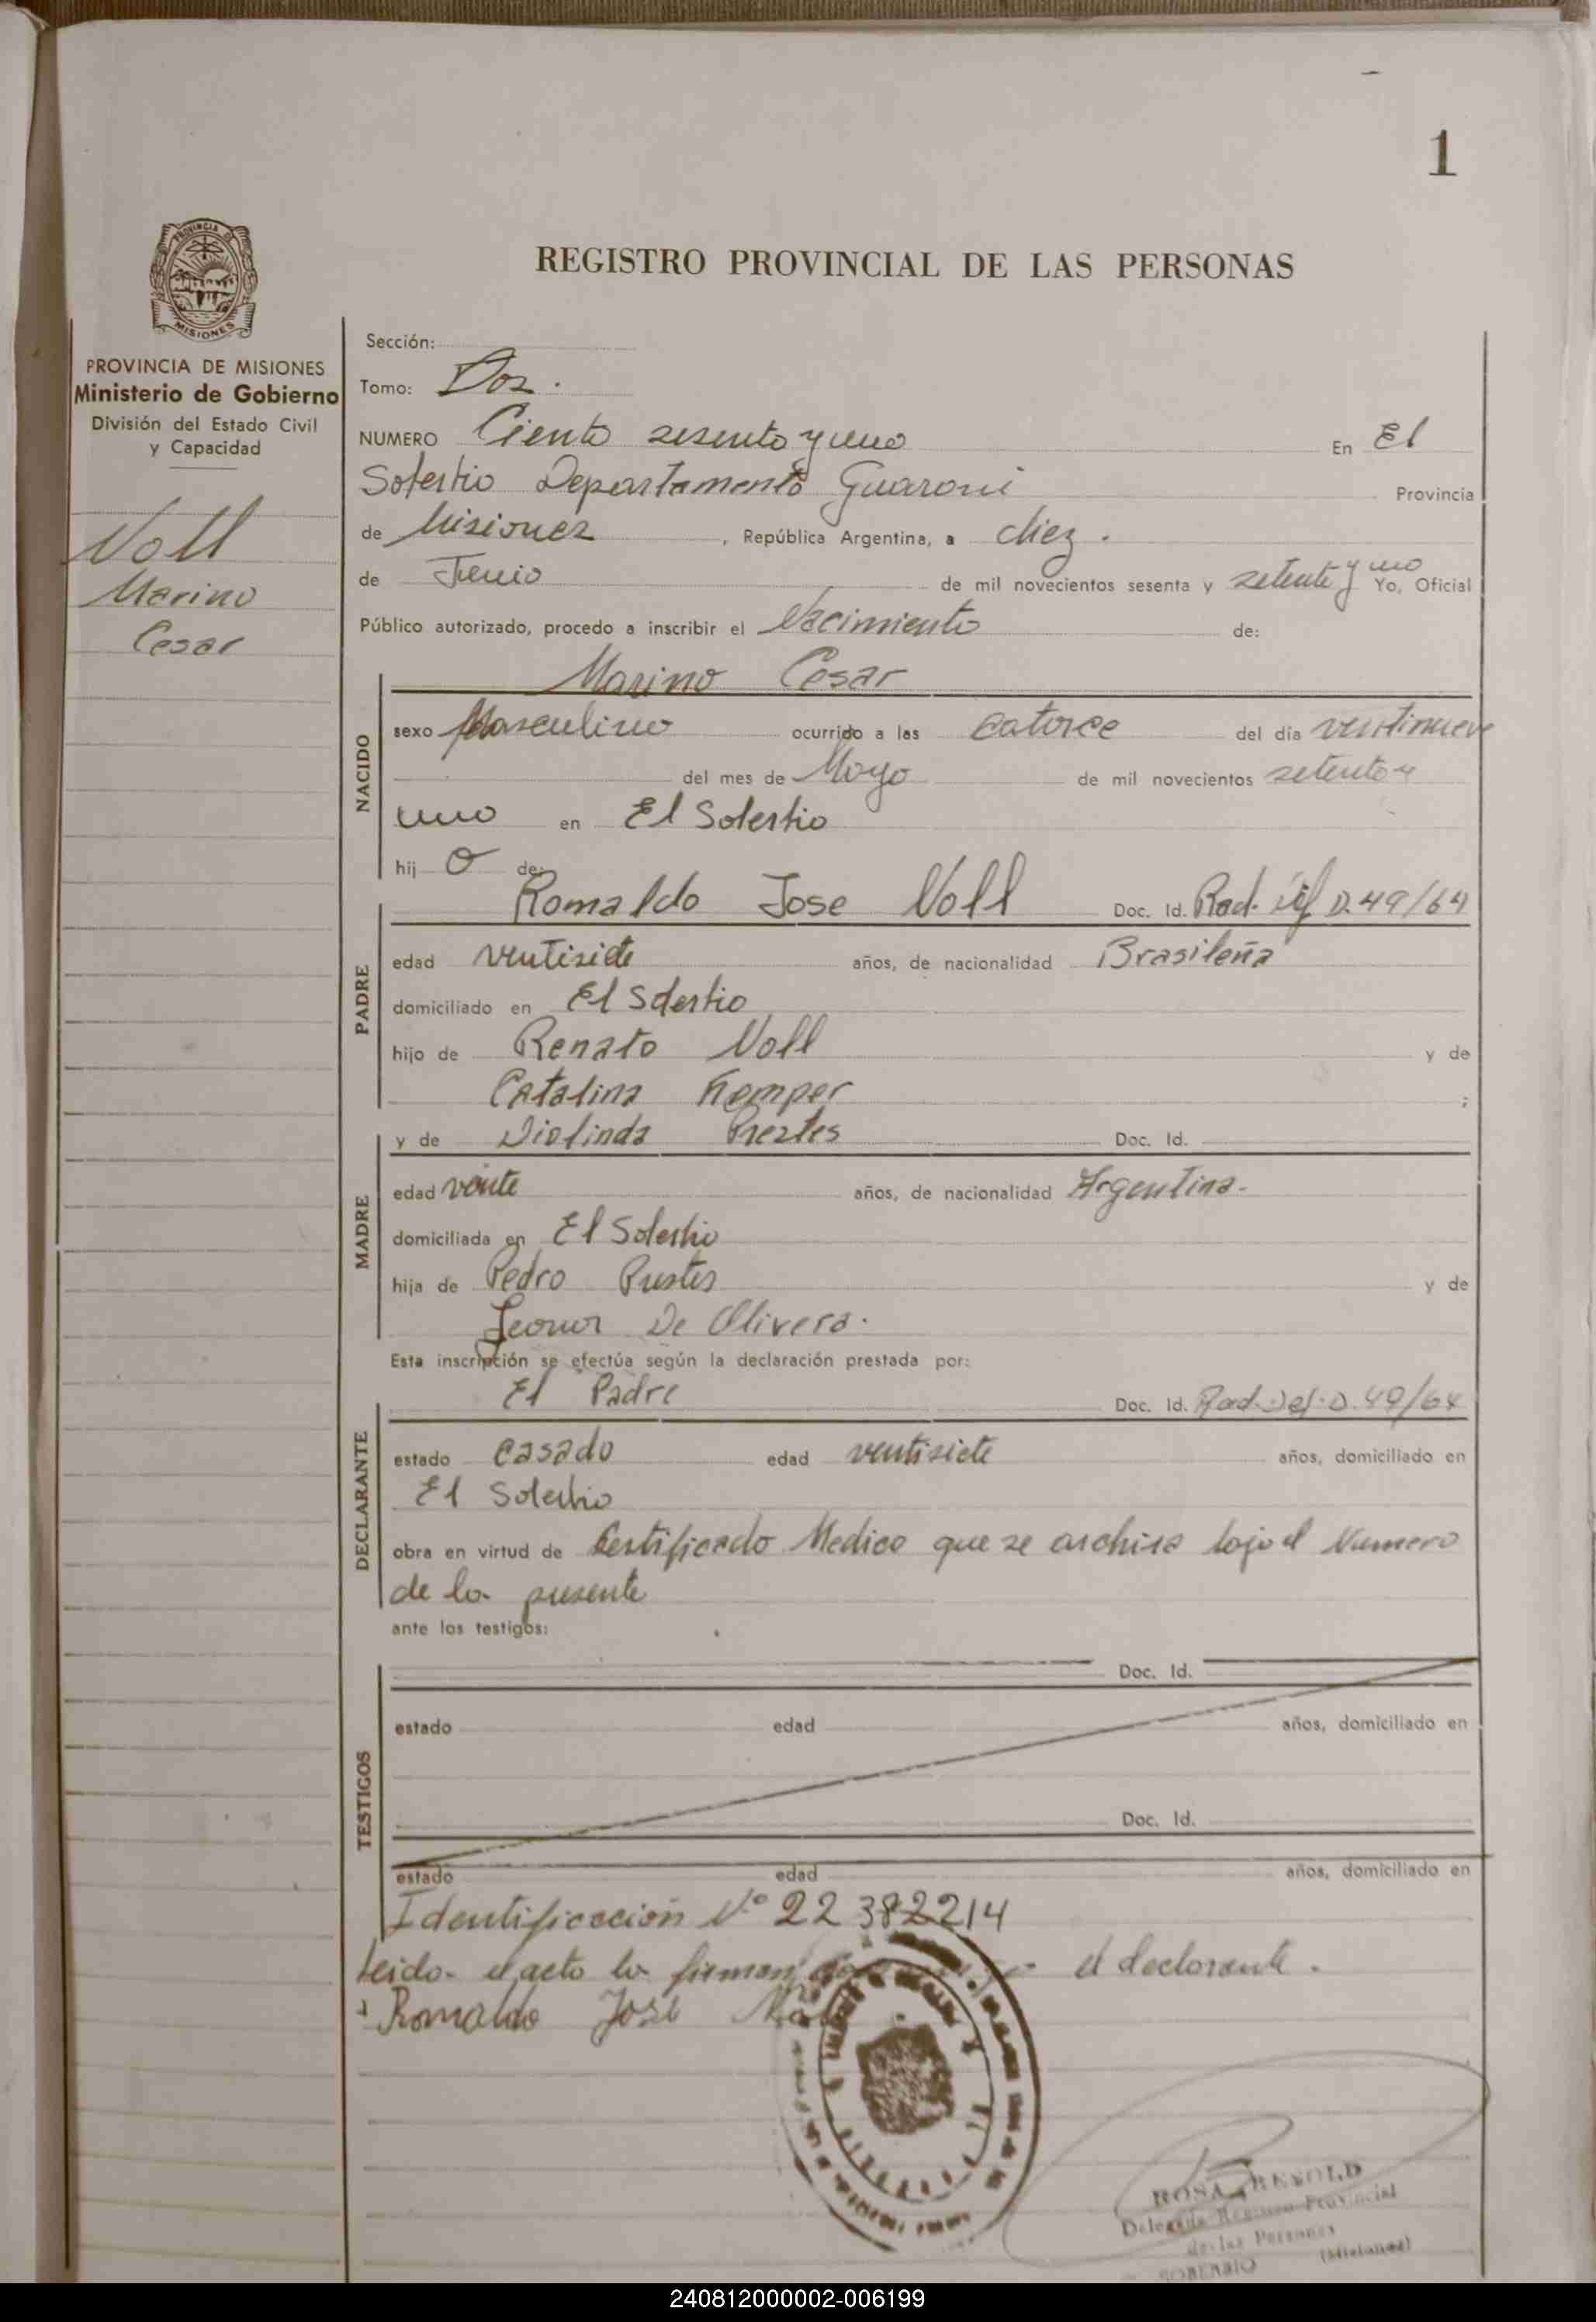 1
PROVINCIA DE
MISIONES
REGISTRO PROVINCIAL DE LAS PERSONAS
PROVINCIA DE MISIONES
Ministerio de Gobierno
División del Estado Civil
y Capacidad
Noll
Marino
Cesar
Sección:
Tomo: Dos.
NUMERO Ciento sesenta y uno En El
Soberbio Departamento Guarani Provincia
de Misiones, República Argentina, a diez.
de Junio de mil novecientos sesenta y setenta y uno Yo, Oficial
Público autorizado, procedo a inscribir el Nacimiento de:
NACIDO
Marino Cesar
sexo Masculino ocurrido a las catorce del día ventinueve
del mes de Mayo de mil novecientos setenta y
uno en El Soberbio
hij o de:
PADRE
Romaldo Jose Noll Doc. Id. Rad. Def D.49/64
edad ventisiete años, de nacionalidad Brasileña
domiciliado en El Soberbio
hijo de Renato Noll y de
Catalina Kemper ;
MADRE
y de Diolinda Prestes Doc. Id.
edad veinte años, de nacionalidad Argentina.
domiciliada en El Soberbio
hija de Pedro Prestes y de
Leonor De Olivera.
Esta inscripción se efectúa según la declaración prestada por:
DECLARANTE
El Padre Doc. Id. Rad. Def. D.49/64
estado casado edad ventisiete años, domiciliado en
El Soberbio
obra en virtud de Certificado Medico que se archiva bajo el Numero
de la presente
ante los testigos:
TESTIGOS
Doc. Id.
estado edad años, domiciliado en
Doc. Id.
estado edad años, domiciliado en
Identificación Nº 22382214
Leido el acto lo firman el declarante.
Romaldo José Noll
ROSA
Delegada Registro Provincial
de las Personas
SOBERBIO (Misiones)
240812000002-006199